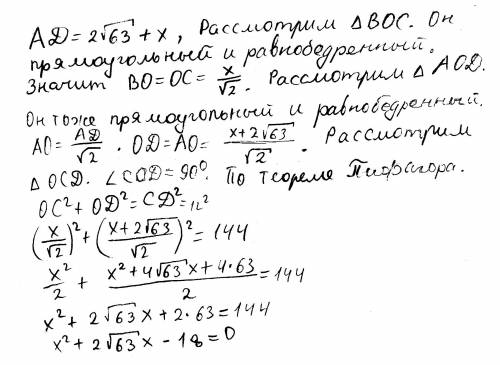 AD = 2√63 + x, Рассмотрим △BOC. Он
прямоугольный и равнобедренный.
Значит BO = OC = x/√2. Рассмотрим △ AOD.
Он тоже прямоугольный и равнобедренный.
AO = AD/√2 . OD = AO = (x+2√63)/√2 . Рассмотрим
△ OCD. ∠COD = 90°. По теореме Пифагора.
OC² + OD² = CD² = 12²
(x/√2)² + ((x+2√63)/√2)² = 144
x²/2 + (x² + 4√63 x + 4·63)/2 = 144
x² + 2√63 x + 2·63 = 144
x² + 2√63 x - 18 = 0